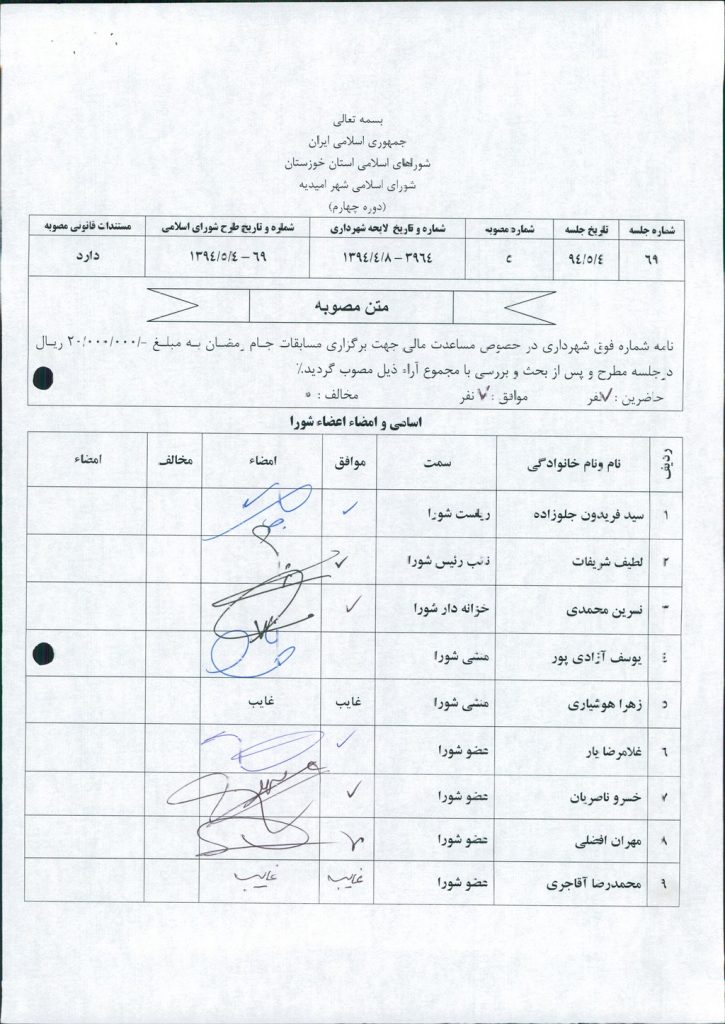 بسمه تعالی
جمهوری اسلامی ایران
شوراهای اسلامی استان خوزستان
شورای اسلامی شهر امیدیه
(دوره چهارم)
شماره جلسه تاریخ جلسه شماره مصوبه شماره و تاریخ لایحه شهرداری شماره و تاریخ طرح شورای اسلامی مستندات قانونی مصوبه
۶۹ ۹٤/۵/٤ ۵ ۳۹٦٤ – ۱۳۹٤/٤/۸ ۶۹ – ۱۳۹٤/۵/٤ دارد
متن مصوبه
نامه شماره فوق شهرداری در خصوص مساعدت مالی جهت برگزاری مسابقات جام رمضان به مبلغ -/۲۰/۰۰۰/۰۰۰ ریال
درجلسه مطرح و پس از بحث و بررسی با مجموع آراء ذیل مصوب گردید٪
حاضرین : ۷نفر موافق : ۷ نفر مخالف : ۰
اسامی و امضاء اعضاء شورا
ردیف نام ونام خانوادگی سمت موافق امضاء مخالف امضاء
۱ سید فریدون جلوزاده ریاست شورا
۲ لطیف شریفات نائب رئیس شورا
۳ نسرین محمدی خزانه دار شورا
٤ یوسف آزادی پور منشی شورا
۵ زهرا هوشیاری منشی شورا غایب غایب
٦ غلامرضا یار عضو شورا
۷ خسرو ناصریان عضو شورا
۸ مهران افضلی عضو شورا
۹ محمدرضا آقاجری عضو شورا غایب غایب